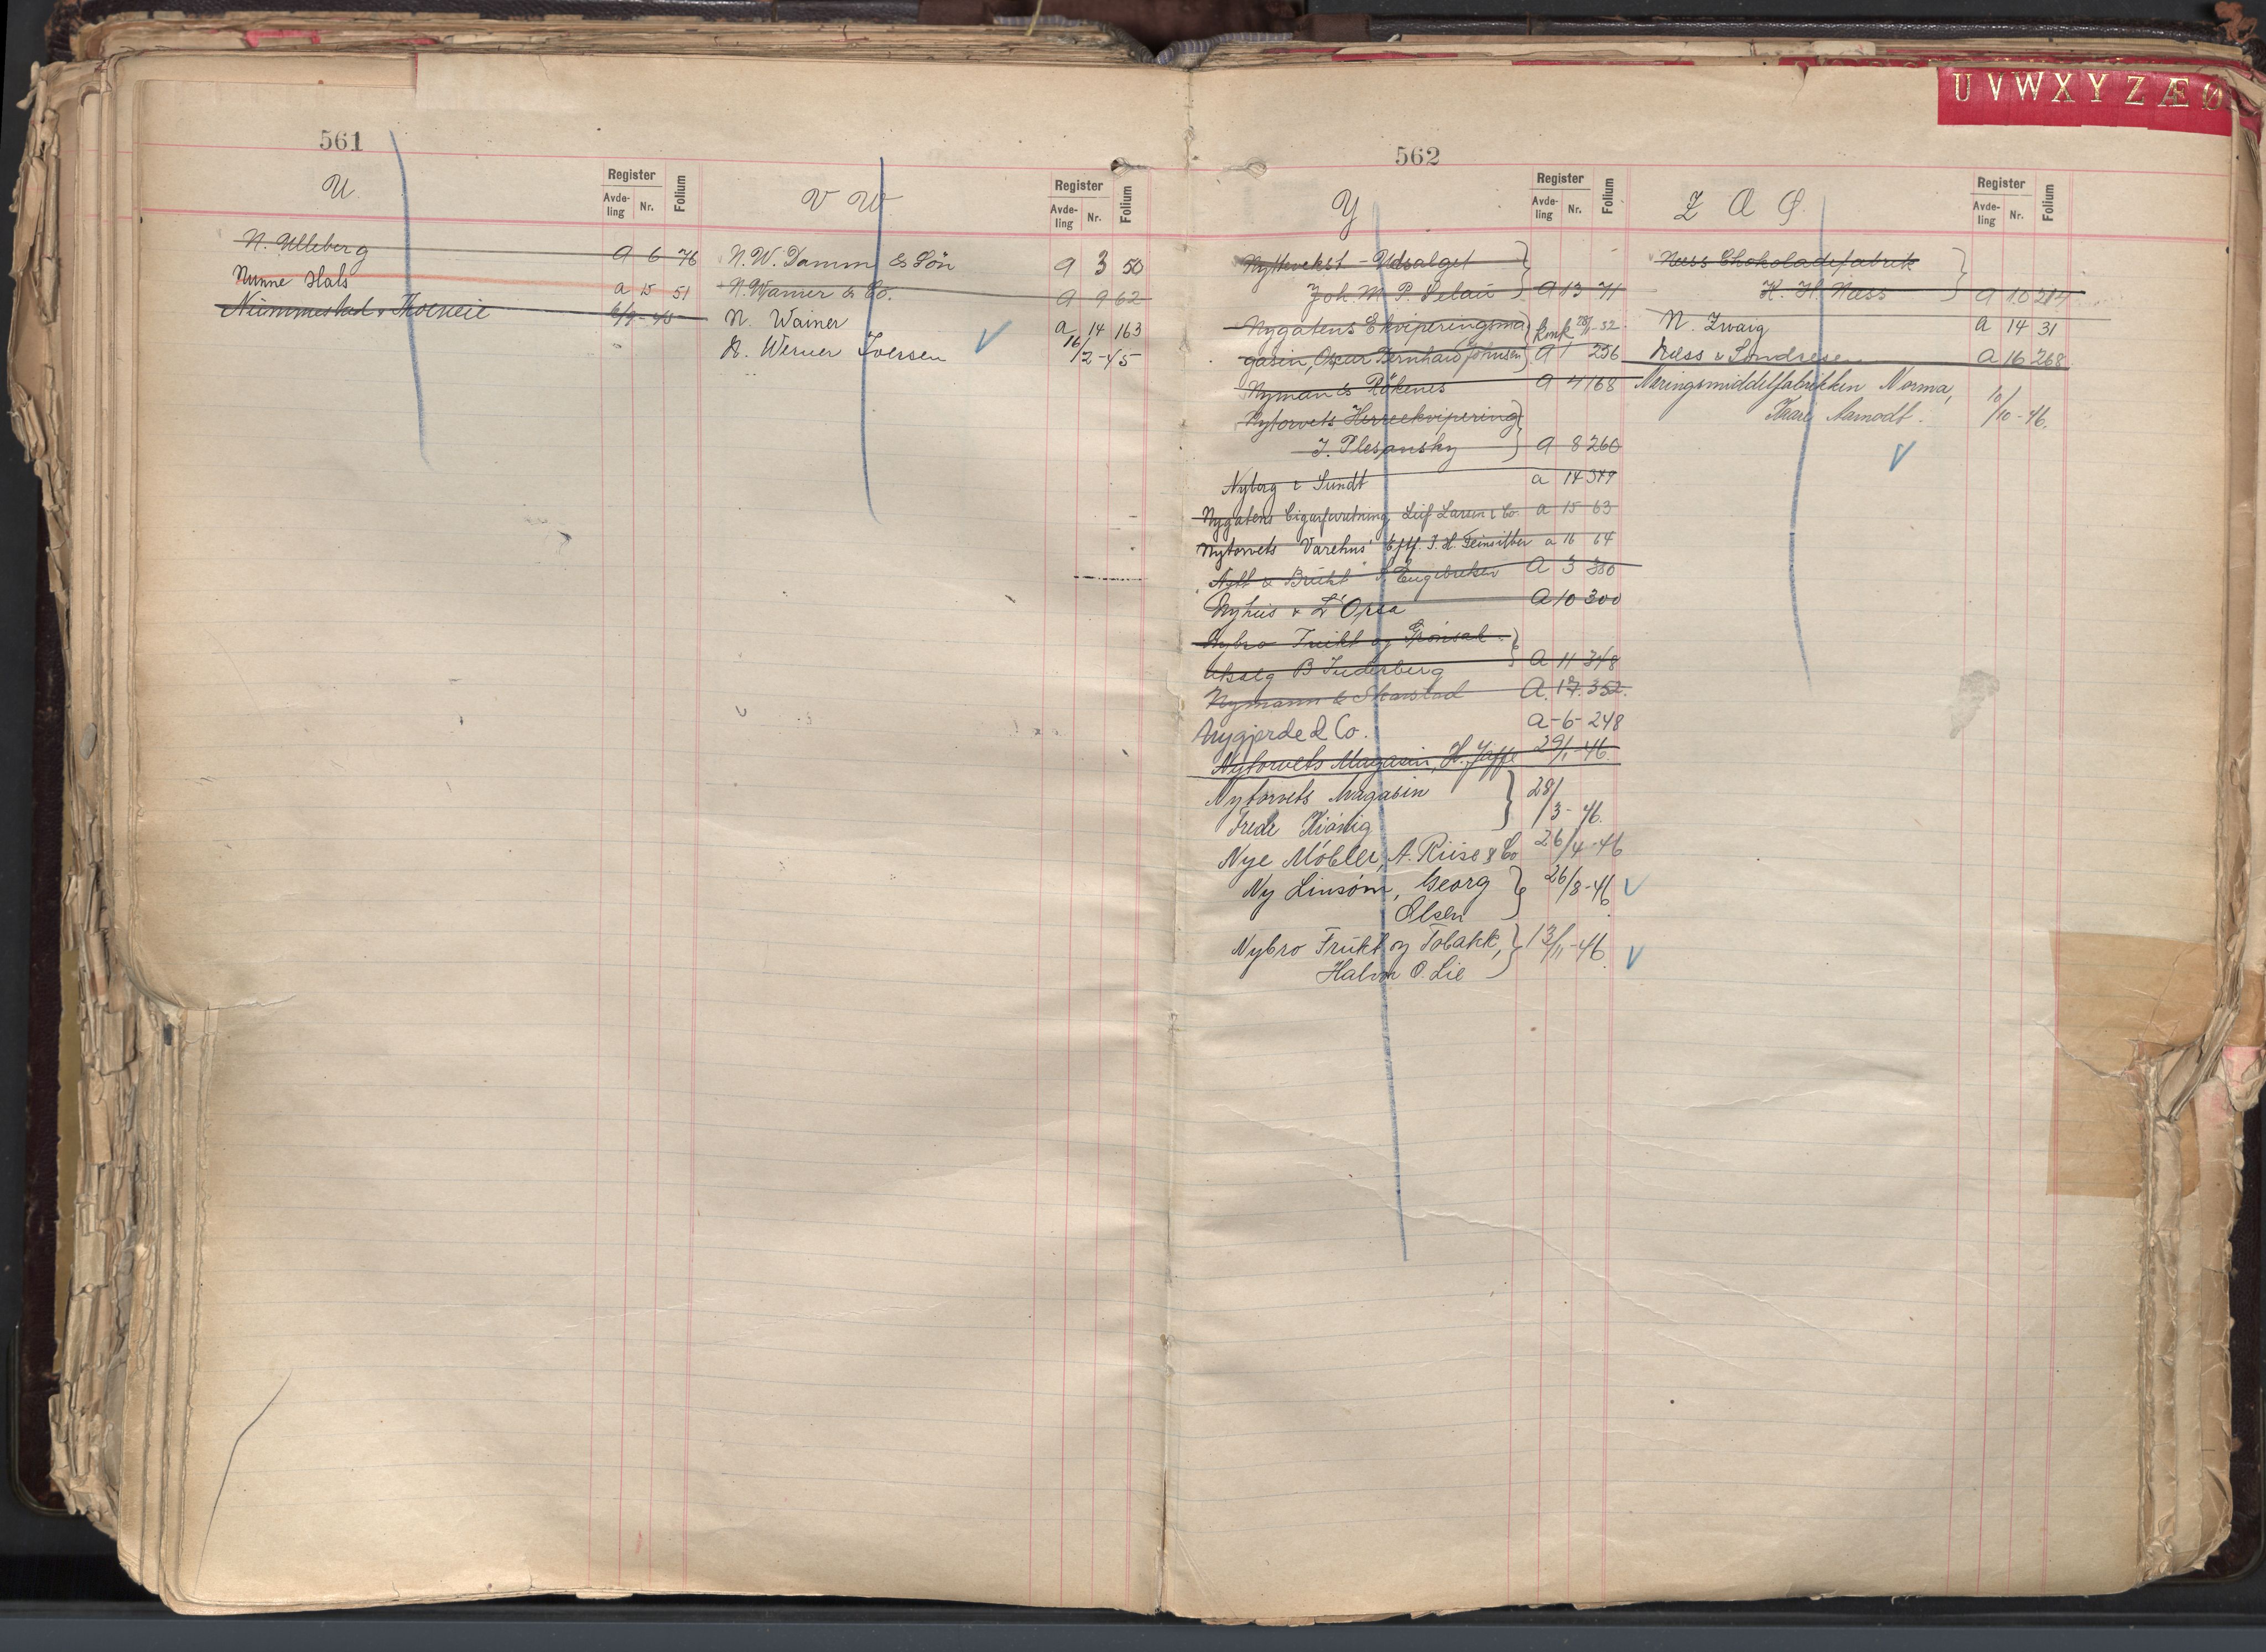 U V W X Y Z Æ Ø
561
U.
Register
Avde-
ling
Nr.
Folium
N. Ulleberg A 6 76
Nunne Hals a 15 51
6/9-40
V W
Register
Avde-
ling
Nr.
Folium
N. W. Damm & Sön A 3 50
N. Warner & Co. A 9 62
N. Wainer a 14 163
N. Werner Iversen 16/2-45
562
Y
Register
Avde-
ling
Nr.
Folium
Nyttevekst-Udsalget
Joh. M. P. A 13 71
Nygatens Ekviperingsma Konk 28/1-32.
gasin, Oscar Bernhard Johnsen A 1 256
Nyman & Rökenes A 4 168
Nytorvets Herreekvipering
J. Plesansky A 8 260
Nyberg & Sundt a 14 349
Nygatens Cigarforretning, Leif Larsen & Co. a 15 63
Nytorvets Varehus Eftf. J. H. Feinsilber a 16 64
Nytt & Brukt S. Engebretsen A 3 380
Nyhus & L'Orsa A 10 300
Nybro Frukt og Grönsak-
utsalg B Suderberg A 11 348
Nymann & Skarstad A. 17. 352.
Nygjorde & Co. a-6-248
Nytorvets Magasin, H. Jaffe 29/1-46.
Nytorvets Magasin 28/3-46.
Frede
Nye Möbler, A. Riise & Co 26/4-46
Ny Linsöm, Georg 26/8-46
Olsen
Nybro Frukt og Tobakk, 13/11-46.
Halvor O. Lie
Z Æ Ø.
Register
Avde-
ling
Nr.
Folium
Næss Chokoladefabrik
H. H. Næss A 10 214
N. Zwaig a 14 31
Næss & A 16 268
Næringsmiddelfabrikken Norma, 10/10-46.
Kaare Aamodt.